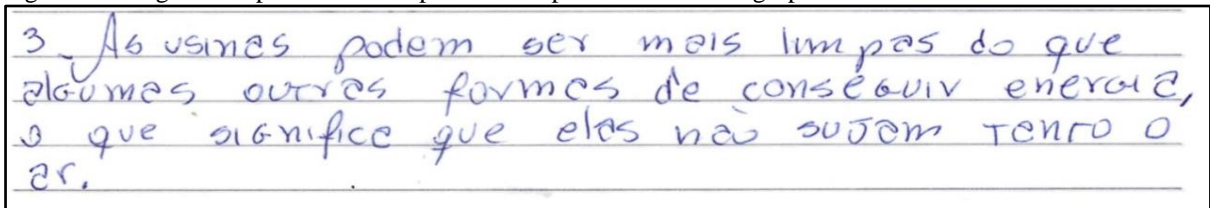 3- As usinas podem ser mais limpas do que
algumas outras formas de conseguir energia,
o que significa que elas não sujam tanto o
ar.